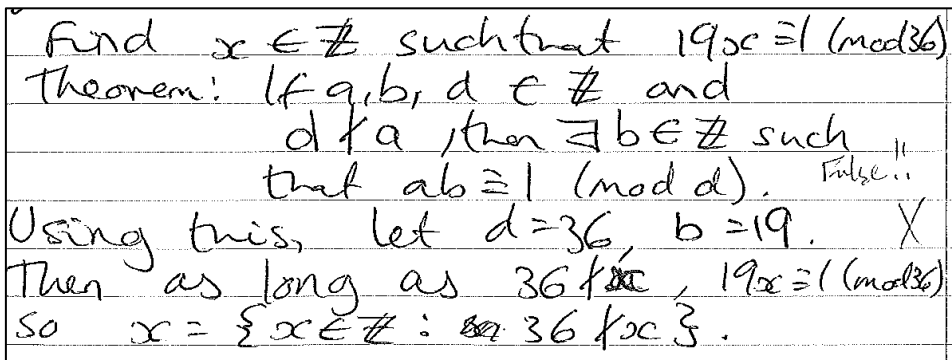 Find x ∈ ℤ such that 19x ≡ 1 (mod 36)
Theorem: If a, b, d ∈ ℤ and
d ∤ a, then ∃ b ∈ ℤ such
that ab ≡ 1 (mod d). False!!
Using this, let d = 36, b = 19. X
Then as long as 36 ∤ x, 19x ≡ 1 (mod 36)
so x = {x ∈ ℤ : 36 ∤ x}.